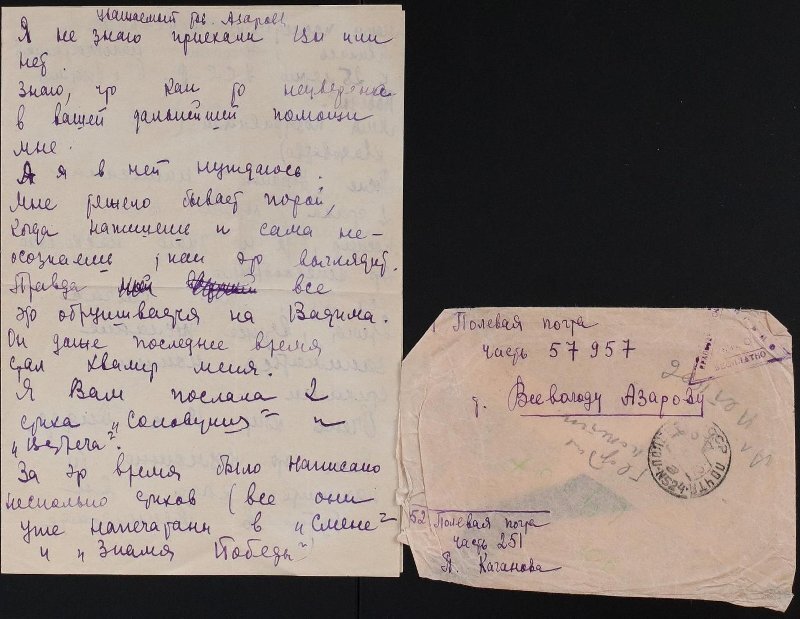 Уважаемый тов. Азаров
Я не знаю приехали Вы или
нет.
Знаю, что как то неуверенна
в вашей дальнейшей помощи
мне.
А я в ней нуждаюсь.
Мне бывает порой,
когда напишешь и сама не-
осознаешь, как это выглядит.
Правда все
это обрушивается на Вадима.
Он даже последнее время
стал хвалит меня.
Я Вам послала 2
стиха „Соловушка" и
„Встреча".
За это время было написано
несколько стихов (все они
уже напечатаны в „Смене"
и „Знамя Победы"
Полевая почта
часть 57957
т. Всеволоду Азарову
БЕСПЛАТНО
ПОЧТА
52 Полевая почта
часть 251
Каганова